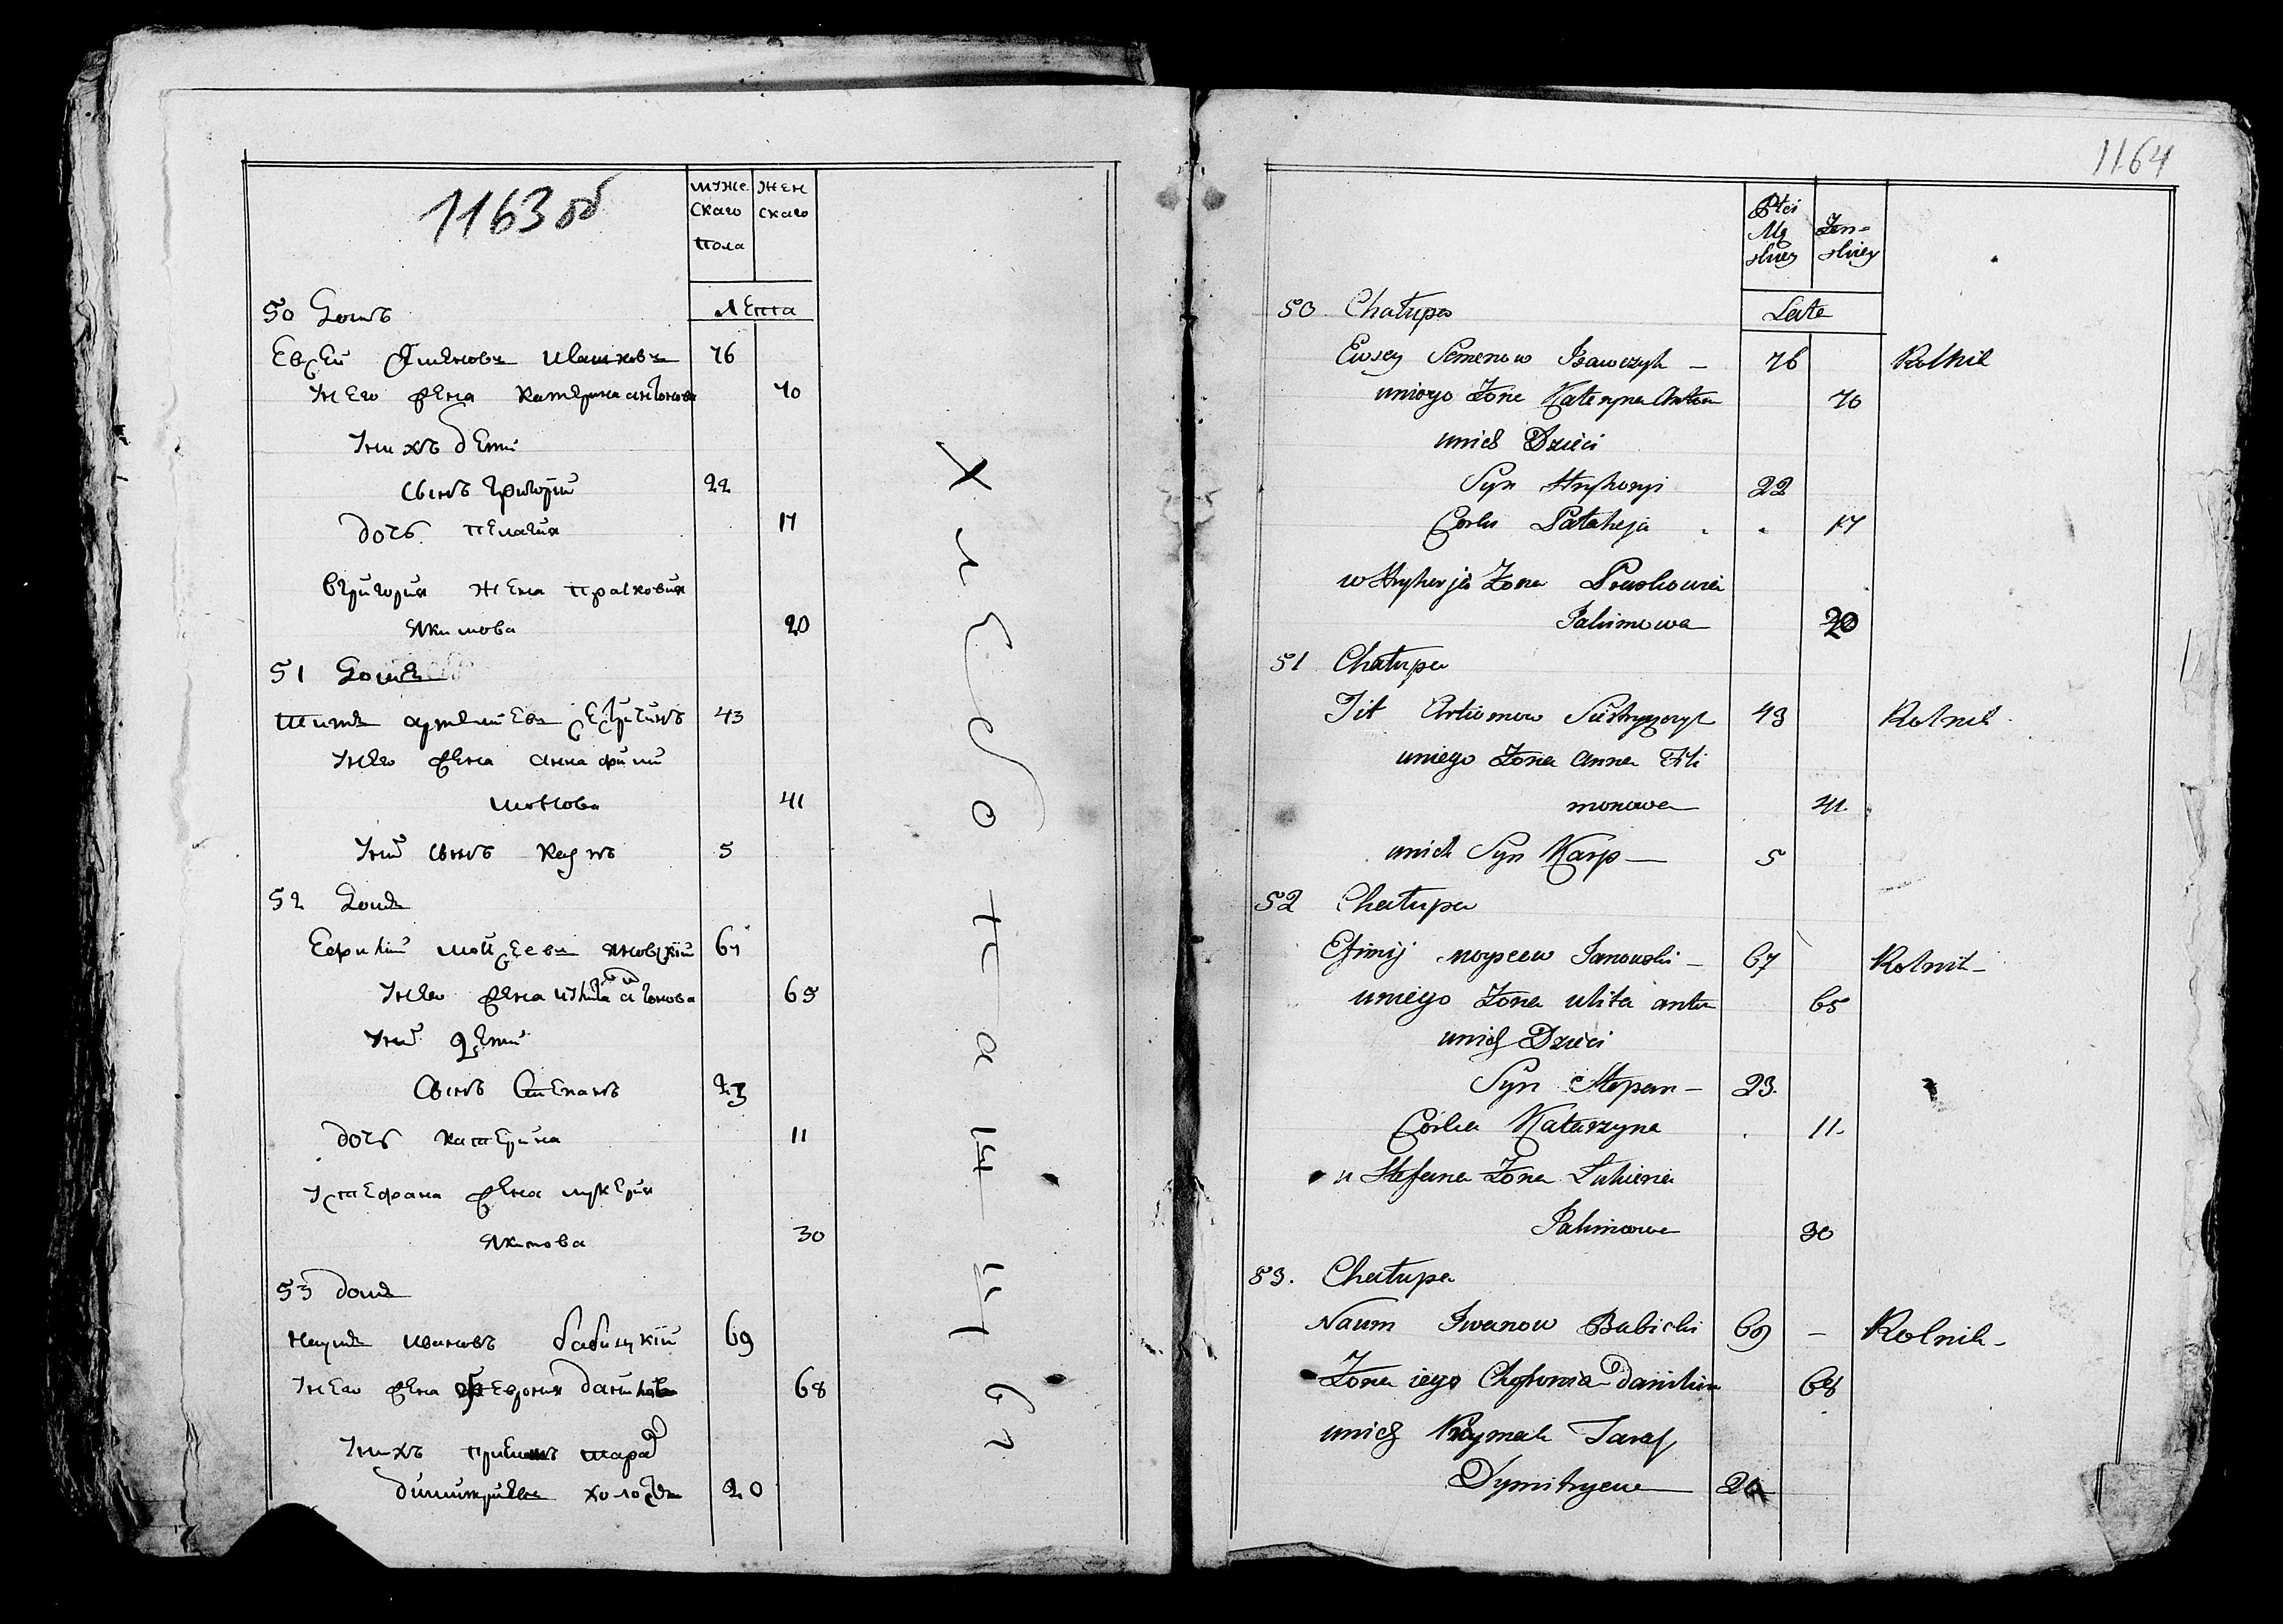 1163 об
муже
скаго
пола
жен
скаго
лета
50 Домъ
Евсей Семеновъ 76
у него жена Катерина Антонова 70
у нихъ дети
сынъ Григорий 22
дочь Пелагия 17
в Григория жена Прасковия
Якимова 20
51 Домъ
Титъ Артемиевъ 43
у него жена Анна Фили
монова 41
у них сынъ Карпъ 5
52 Домъ
Ефимий Мойсеевъ Яновский 67
у него жена Улита Антонова 65
у них дети
сынъ Степанъ 23
дочь Катерина 11
у Стефана жена Лукерия
Якимова 30
53 домъ
Наумъ Ивановъ Бабицкий 69
у него жена Феврония Данилова 68
у нихъ приемъ Тарас
Димитриевъ 20
Хлебопашцы
1164
Płci
Mę
skiey
Żen=
skiey
Late
50 Chałupa
Ewsey Semenow 76 Rolnik
u niego Żona Kateryna Anton 70
u nich Dzieci
Syn Hryhoryi 22
Corka Pałaheja 17
w Hryheja Żona Praskowia
Jakimowa 20
51 Chałupa
Tit Artiomow 43 Rolnik
u niego Żona Anna Fili
monowa 41.
u nich Syn Karp 5
52 Chałupa
Efimij Moyseew Janowski 67 Rolnik
u niego Żona Ulita Anton 65
u nich Dzieci
Syn Stepan 23.
Córka Katarzyna 11.
u Stefana Żona Lukieria
Jakimowa 30
53. Chałupa
Naum Iwanow Babicki 69 – Rolnik
Żona iego Chefronia Daniłow 68
u nich Taras
Dymitryew 20